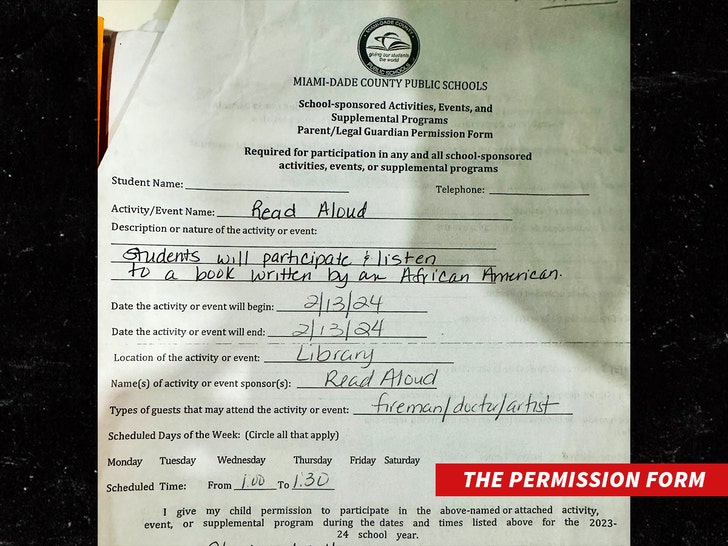 MIAMI-DADE COUNTY
giving our students
the world
PUBLIC SCHOOLS
MIAMI-DADE COUNTY PUBLIC SCHOOLS
School-sponsored Activities, Events, and
Supplemental Programs
Parent/Legal Guardian Permission Form
Required for participation in any and all school-sponsored
activities, events, or supplemental programs
Student Name: Telephone:
Activity/Event Name: Read Aloud
Description or nature of the activity or event:
Students will participate & listen
to a book written by an African American.
Date the activity or event will begin: 2/13/24
Date the activity or event will end: 2/13/24
Location of the activity or event: Library
Name(s) of activity or event sponsor(s): Read Aloud
Types of guests that may attend the activity or event: fireman/doctor/artist
Scheduled Days of the Week: (Circle all that apply)
Monday Tuesday Wednesday Thursday Friday Saturday
Scheduled Time: From 1:00 To 1:30
THE PERMISSION FORM
I give my child permission to participate in the above-named or attached activity,
event, or supplemental program during the dates and times listed above for the 2023-
24 school year.